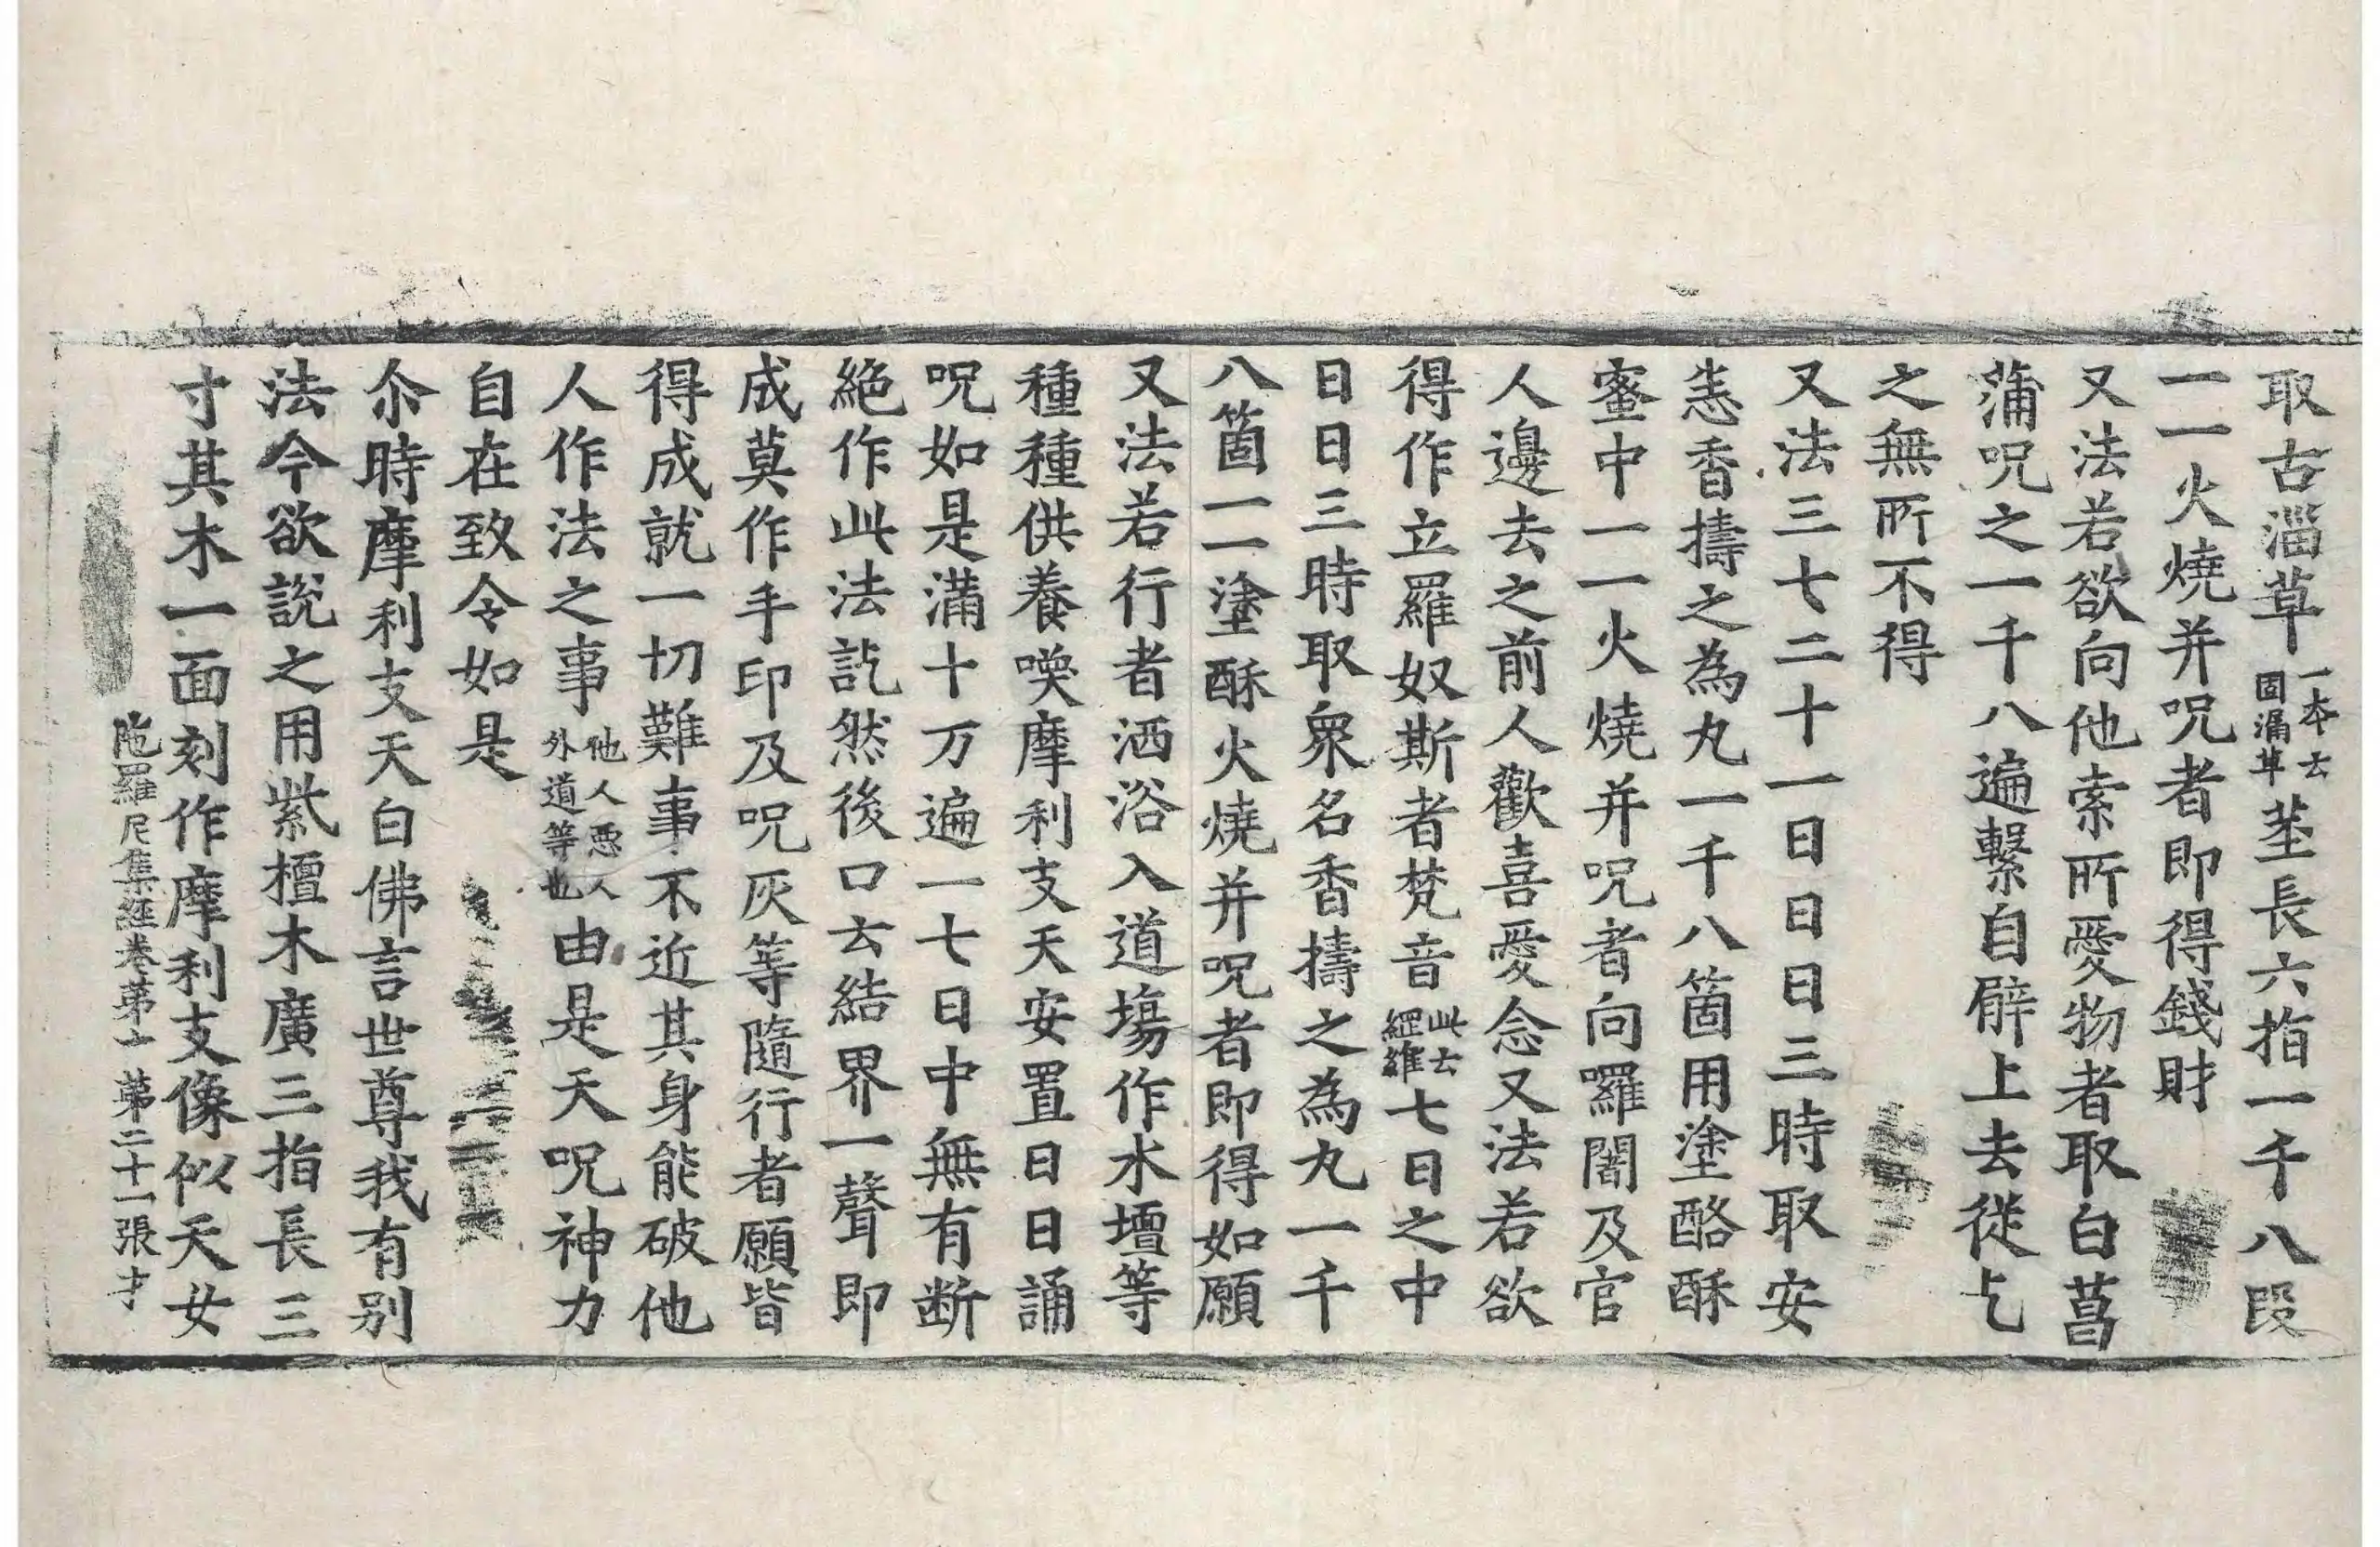 取古淄草一本云固漏草莖長六指一千八段
一一火燒并呪者即得錢財
又法若欲向他索所愛物者取白菖
蒲呪之一千八遍繫自臂上去從乞
之無所不得
又法三七二十一日日日三時取安
悉香擣之為丸一千八箇用塗酪酥
蜜中一一火燒并呪者向囉闍及官
人邊去之前人歡喜愛念又法若欲
得作立羅奴斯者梵音此云經維七日之中
日日三時取衆名香擣之為丸一千
八箇一一塗酥火燒并呪者即得如願
又法若行者洒浴入道塲作水壇等
種種供養喚摩利支天安置日日誦
呪如是滿十万遍一七日中無有断
絶作此法訖然後口云結界一聲即
成莫作手印及呪灰等隨行者願皆
得成就一切難事不近其身能破他
人作法之事他人惡人外道等也由是天呪神力
自在致令如是
尒時摩利支天白佛言世尊我有别
法今欲說之用紫檀木廣三指長三
寸其木一面刻作摩利支像似天女
陁羅尼集經卷第十 第二十一張才